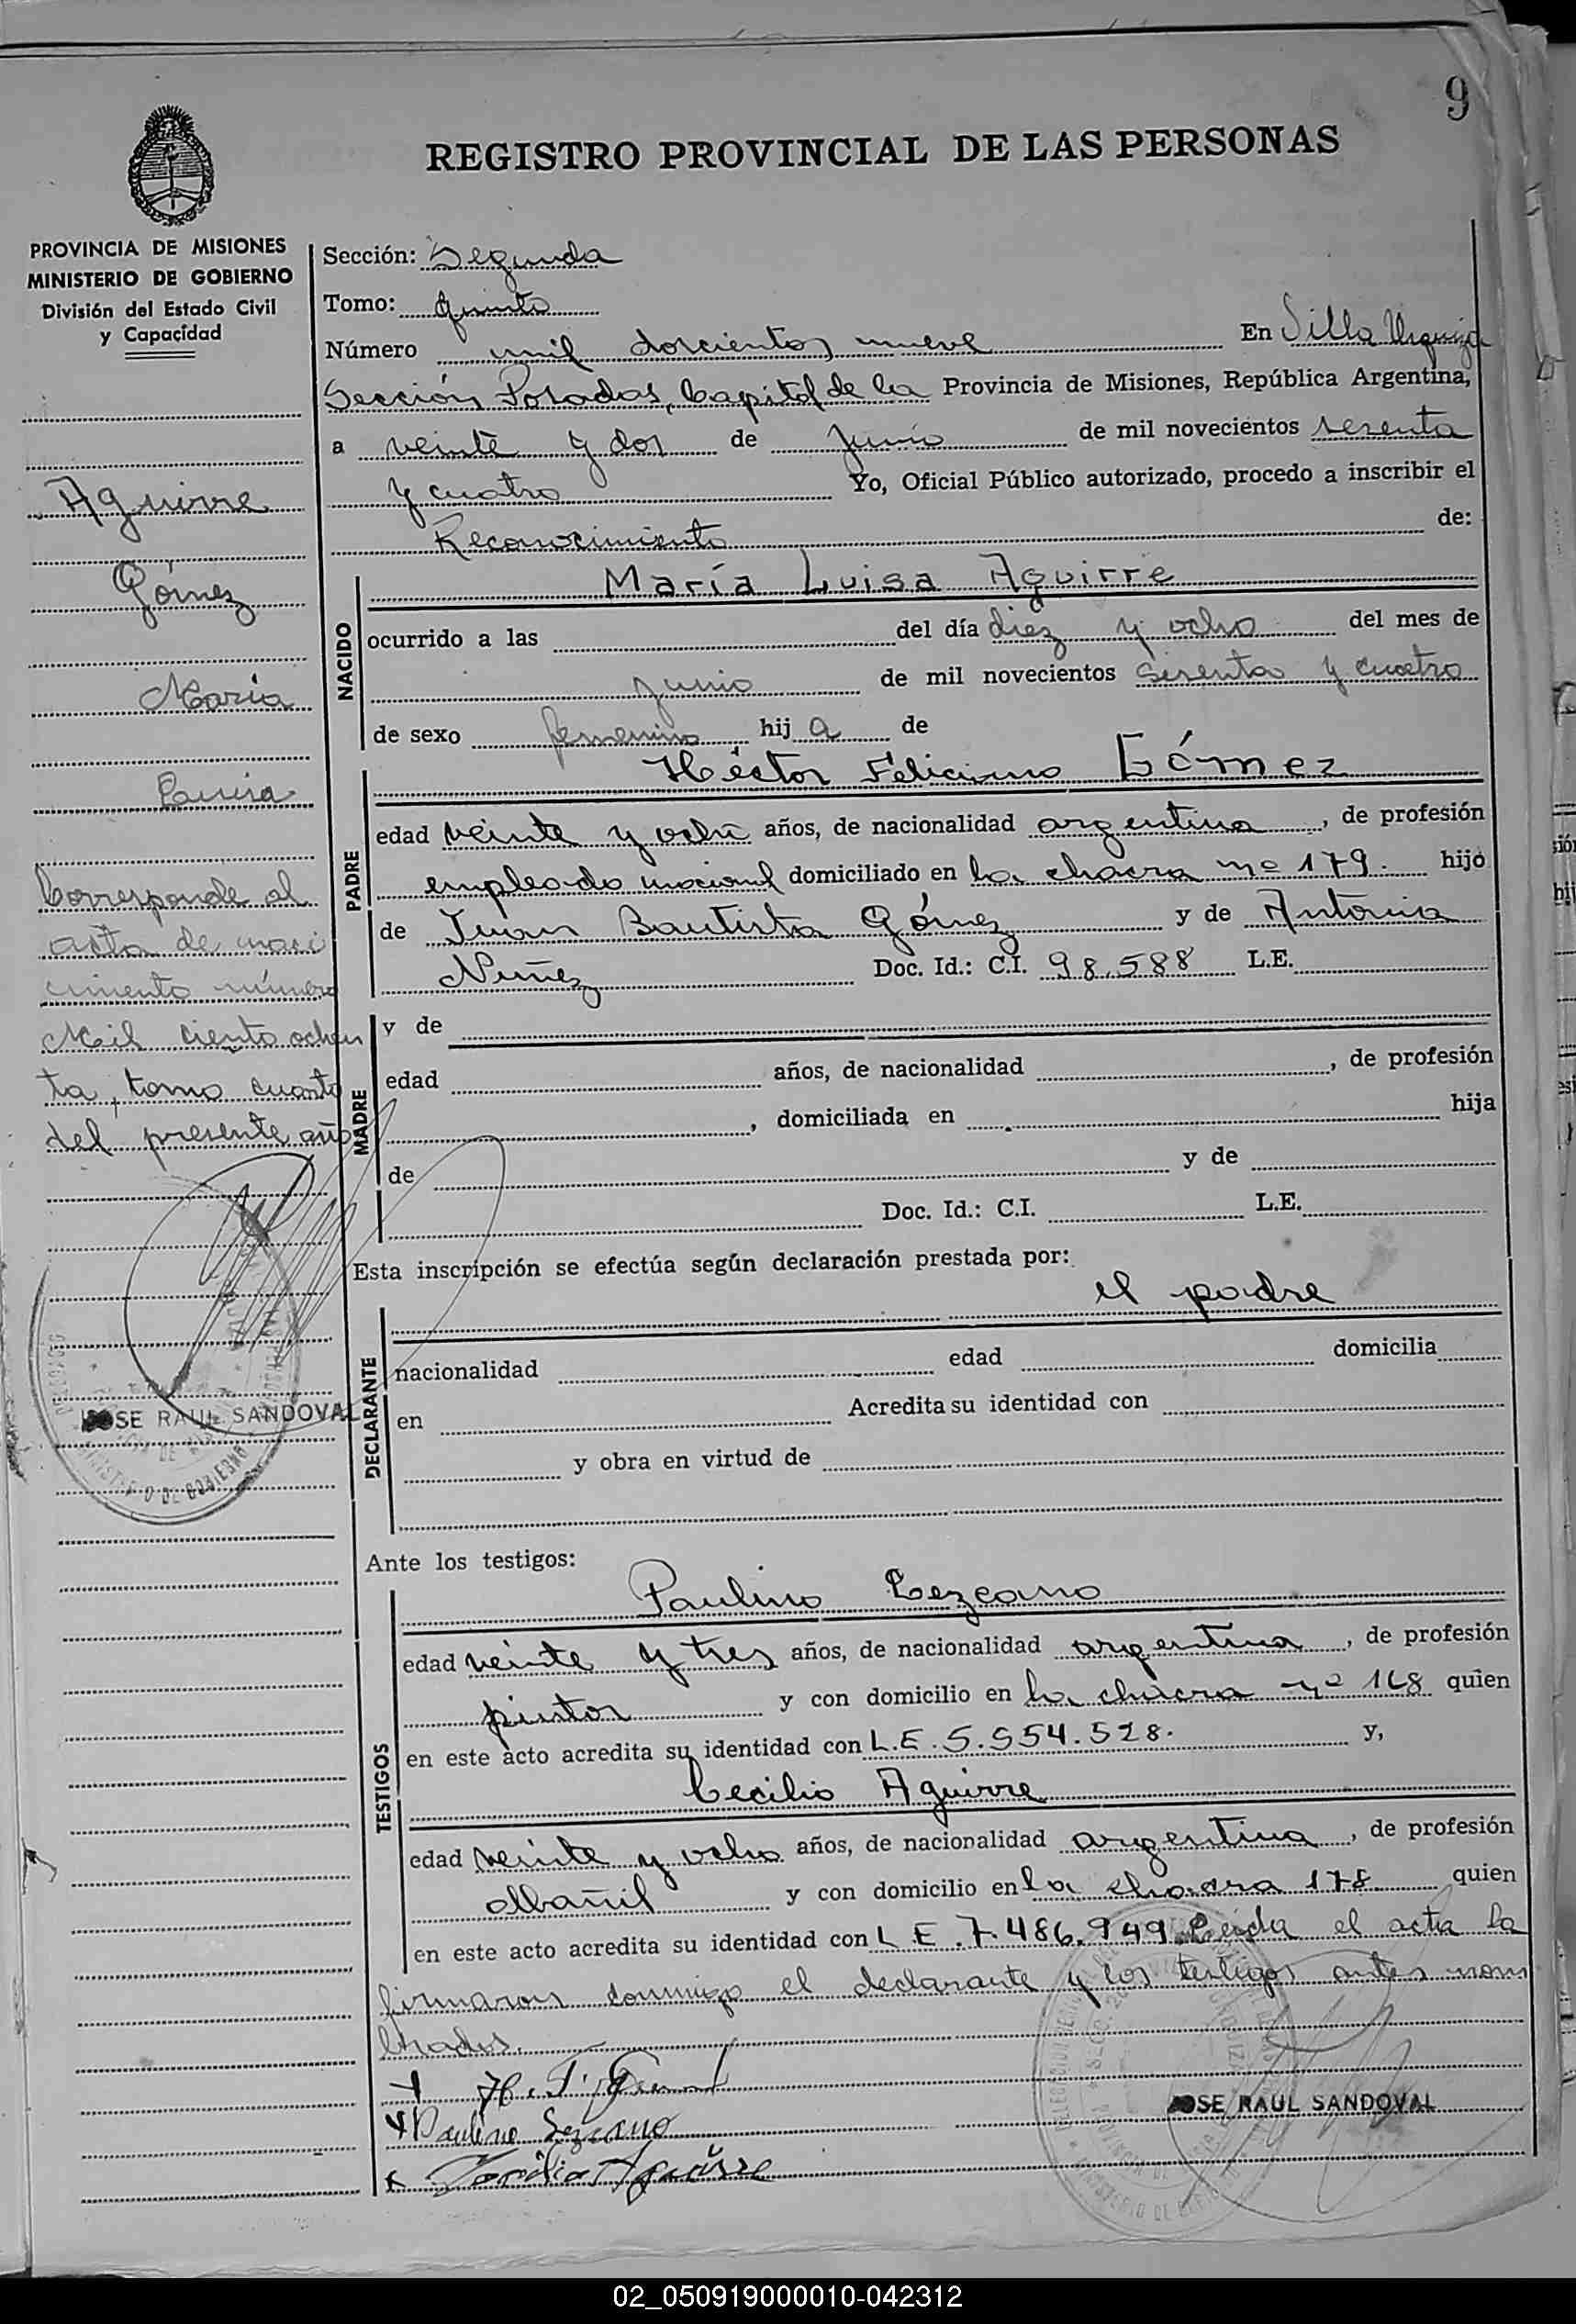 9
REGISTRO PROVINCIAL DE LAS PERSONAS
PROVINCIA DE MISIONES
MINISTERIO DE GOBIERNO
División del Estado Civil
y Capacidad
Aguirre
Gómez
María
Luisa
Corresponde al
acta de naci
miento número
Mil ciento ochen
ta, tomo cuarto
del presente año
JOSE RAUL SANDOVAL
Sección: Segunda
Tomo: Quinto
Número mil doscientos nueve En Villa Urquiza
Sección Posadas, Capital de la Provincia de Misiones, República Argentina,
a veinte y dos de Junio de mil novecientos sesenta
y cuatro Yo, Oficial Público autorizado, procedo a inscribir el
Reconocimiento de:
NACIDO
María Luisa Aguirre
ocurrido a las del día diez y ocho del mes de
Junio de mil novecientos sesenta y cuatro
de sexo femenino hij a de
PADRE
Héctor Feliciano Gómez
edad veinte y ocho años, de nacionalidad argentina, de profesión
empleado nacional domiciliado en la chacra nº 179. hijo
de Juan Bautista Gómez y de Antonia
Nuñez Doc. Id.: C.I. 98.588 L.E.
MADRE
y de
edad años, de nacionalidad , de profesión
, domiciliada en hija
de y de
Doc. Id.: C.I. L.E.
Esta inscripción se efectúa según declaración prestada por:
el padre
DECLARANTE
nacionalidad edad domicilia
en Acredita su identidad con
y obra en virtud de
Ante los testigos:
TESTIGOS
Paulino Lezcano
edad veinte y tres años, de nacionalidad argentina, de profesión
pintor y con domicilio en la chacra nº 168 quien
en este acto acredita su identidad con L.E. 5.954.528. y,
Cecilio Aguirre
edad veinte y ocho años, de nacionalidad argentina, de profesión
albañil y con domicilio en la chacra 178 quien
en este acto acredita su identidad con L E. 7.486.949 Leída el acta la
firmaron conmigo el declarante y los testigos antes nom
brados.
Paulino Lezcano
Cecilio Aguirre
JOSE RAUL SANDOVAL
02_050919000010-042312